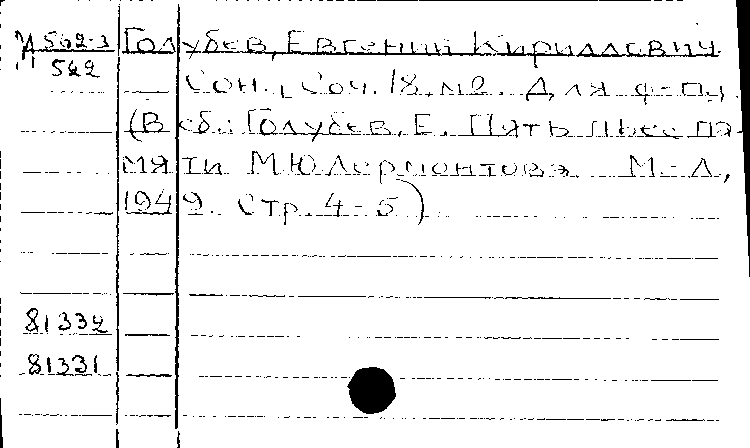 Д 562-3 Голубев, Евгений Кириллович
522
Сон., Соч. 18, №2. Для ф-п.
(В сб.: Голубев, Е. Пять пьес па-
мяти М.Ю.Лермонтова М.-Л.,
1949. Стр. 4-5)
81332
81331